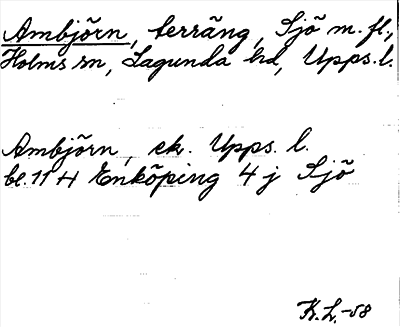 Ambjörn, terräng, Sjö m. fl.,
Holms sn, Lagunda hd, Upps. l.
Ambjörn, ek. Upps. l.
bl. 11 H Enköping 4 j Sjö
K.L.-58